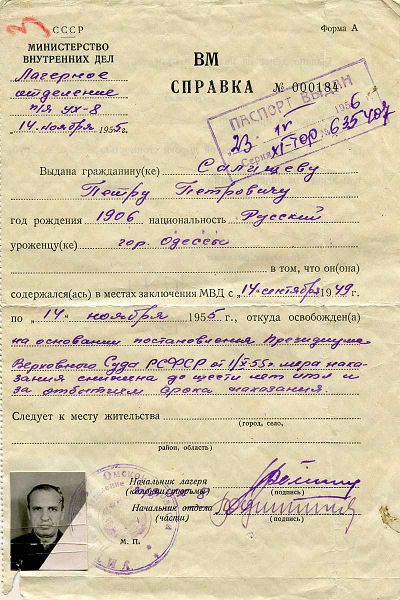 СССР
Форма А
МИНИСТЕРСТВО
ВНУТРЕННИХ ДЕЛ
Лагерное
отделение
п/я УХ-8
„14" ноября 1955г.
ВМ
СПРАВКА № 000184
ПАСПОРТ ВЫДАН
23 IV 1956
Серия XI-ТОР № 635407
Выдана гражданину(ке) Салищеву
Петру Петровичу
год рождения 1906 национальность Русский
уроженцу(ке) гор. Одессы
в том, что он(она)
содержался(ась) в местах заключения МВД с „14" сентября 1949 г.
по „14" ноября 1955 г., откуда освобожден(а)
на основании постановления Президиума
Верховного Суда РСФСР от 1/X-55г. мера нака-
зания снижена до шести лет ИТЛ и
за отбытием срока наказания.
Следует к месту жительства
(город, село,
район, область)
Начальник лагеря
(подпись)
Начальник отдела
(части)
(подпись)
М. П.